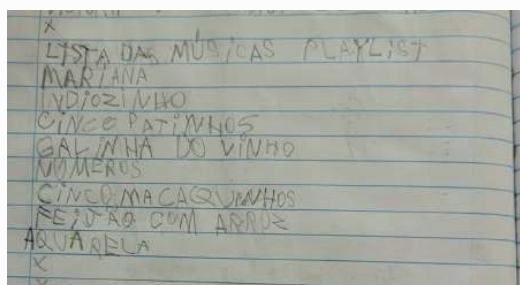 X
LISTA DAS MÚSICAS PLAYLIST
MARIANA
INDIOZINHO
CINCO PATINHOS
GALINHA DO VINHO
NÚMEROS
CINCO MACAQUINHOS
FEIJÃO COM ARROZ
AQUARELA
X
X